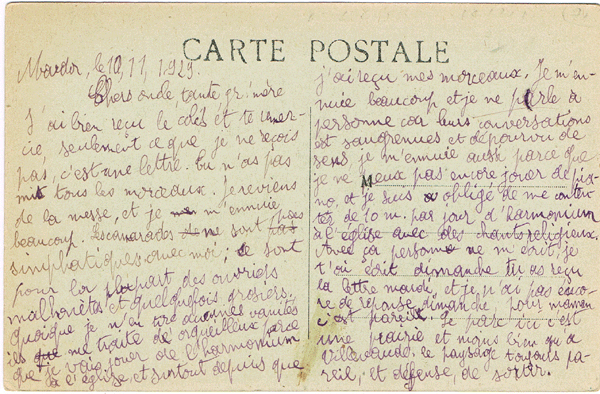 CARTE POSTALE
le 10, 11, 1929.
Chers oncle, tante, gr. mère
J'ai bien reçu le colis et te remer-
cie, seulement ce que je ne reçois
pas, c'est une lettre. tu n'as pas
mis tous les morceaux. Je reviens
de la messe, et je m'ennuie
beaucoup. Les camarades ne sont pas
simphatiques avec moi; ce sont
pour la plupart des ouvriers
malhonètes et quelquefois grosiers.
quoique je n'en tire aucunes vanités
ils me traite de orgueilleux parce
que je vais jouer de l'harmonium
à l'église, et surtout depuis que
j'ai reçu mes morceaux. Je m'en-
nuie beaucoup et je ne parle à
personne car leurs conversations
est saugrenues et dépourvu de
sens, je m'ennuie aussi parce que
je ne peux pas encore jouer de pia-
no, et je suis obligé de me conten-
ter de 10 m. par jour d'harmonium
à l'église avec des chants religieux.
Avec ça personne ne m'écrit, je
t'ai écrit dimanche tu as reçu
la lettre mardi, et je, j'ai pas enco-
re de réponse dimanche, pour maman
c'est pareil. Le parc ici c'est
une prairie et moins bien qu'à
le paysage toujours pa-
reil, et défense, de sortir.